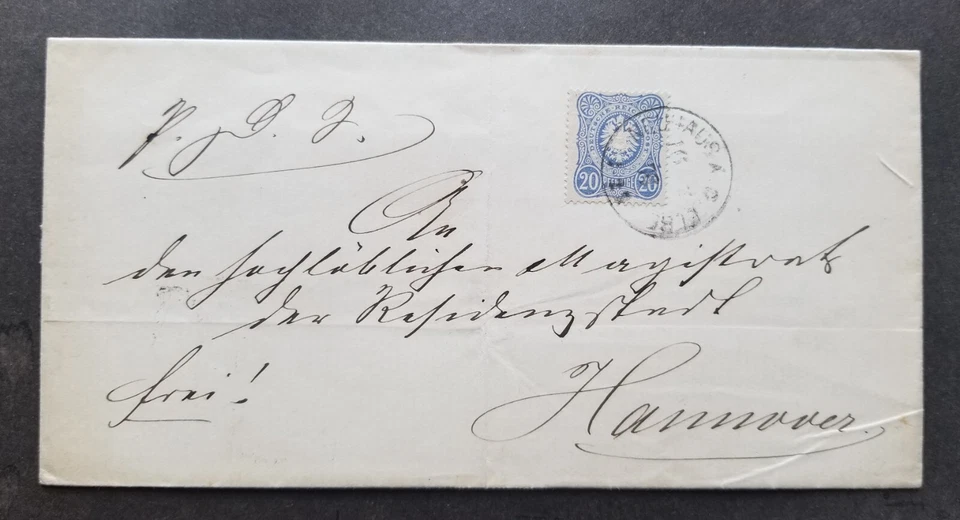 P. D. S.
DEUTSCHE REICHS-POST
20 PFENNIGE 20
HAUS A D ELBE
16
An
den hochlöblichen Magistrat
der Residenzstadt
frei!
Hannover.